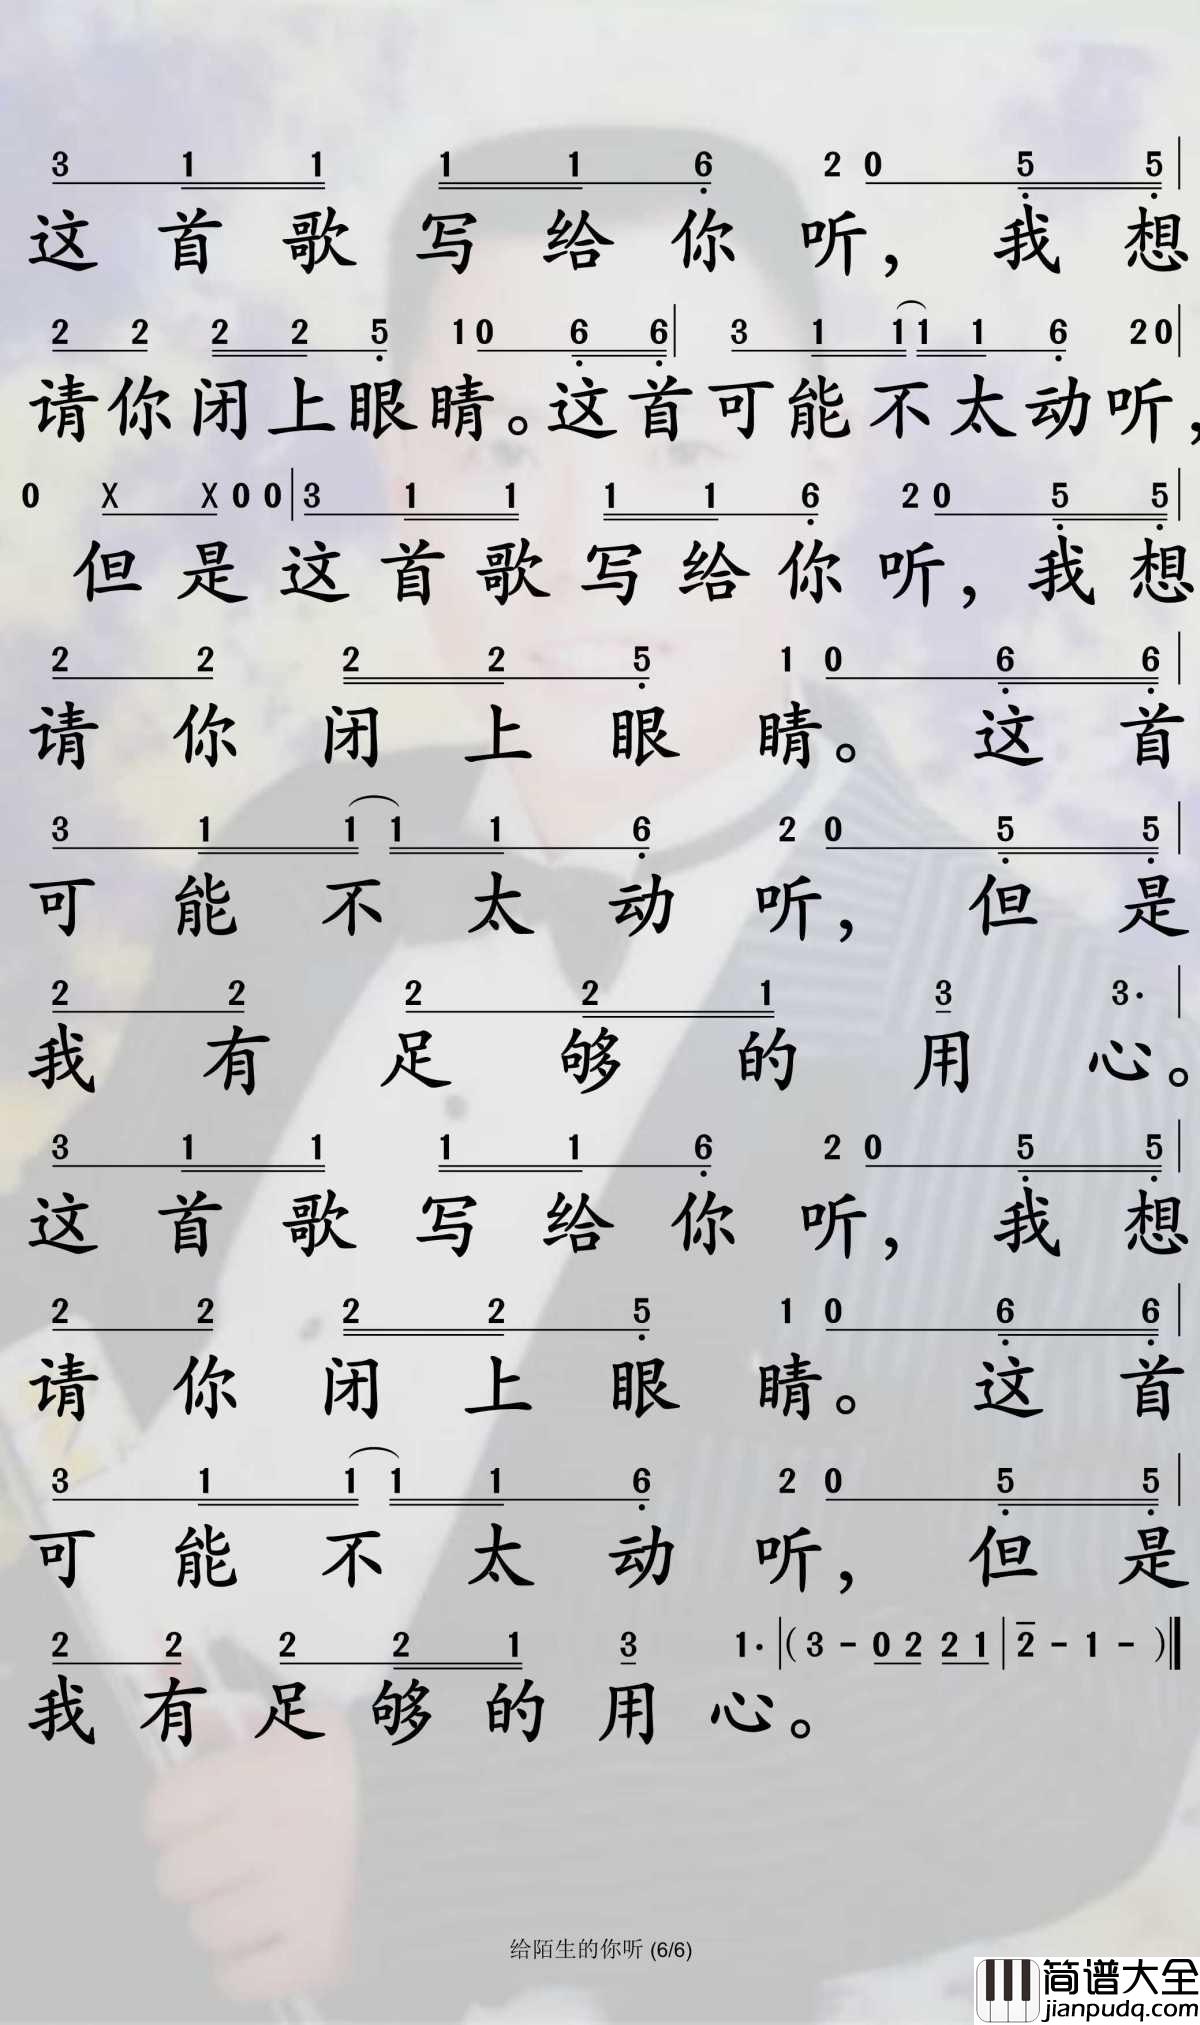 3 1 1 1 1 6 2 0 5 5
这首歌写给你听，我想
2 2 2 2 5 1 0 6 6 3 1 1 1 1 6 2 0
请你闭上眼睛。这首可能不太动听，
0 X X 0 0 3 1 1 1 1 6 2 0 5 5
但是这首歌写给你听，我想
2 2 2 2 5 1 0 6 6
请你闭上眼睛。这首
3 1 1 1 1 6 2 0 5 5
可能不太动听，但是
2 2 2 2 1 3 3·
我有足够的用心。
3 1 1 1 1 6 2 0 5 5
这首歌写给你听，我想
2 2 2 2 5 1 0 6 6
请你闭上眼睛。这首
3 1 1 1 1 6 2 0 5 5
可能不太动听，但是
2 2 2 2 1 3 1· (3 - 0 2 2 1 2 - 1 - )
我有足够的用心。
给陌生的你听 (6/6)
简谱大全
jianpudq.com